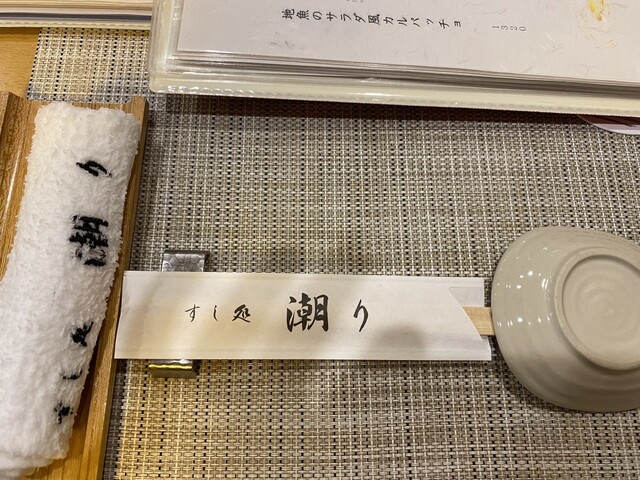 地魚のサラダ風カルパッチョ 1320
すし処 潮り
すし処 潮り